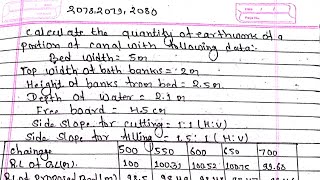 2078, 2079, 2080
Calculate the quantity of earthwork of a
portion of canal with following data:
Bed width = 5m
Top width of both banks = 2m
Height of banks from bed = 2.5m
Depth of Water = 2.1m
Free board = 45cm
Side Slope for cutting = 1:1 (H:V)
Side Slope for filling = 1.5:1 (H:V)
chainage 500 550 600 650 700
R.L of G.L(m). 100 100.31 100.52 100.75 99.68
R.L of Proposed Bed(m) 98.5